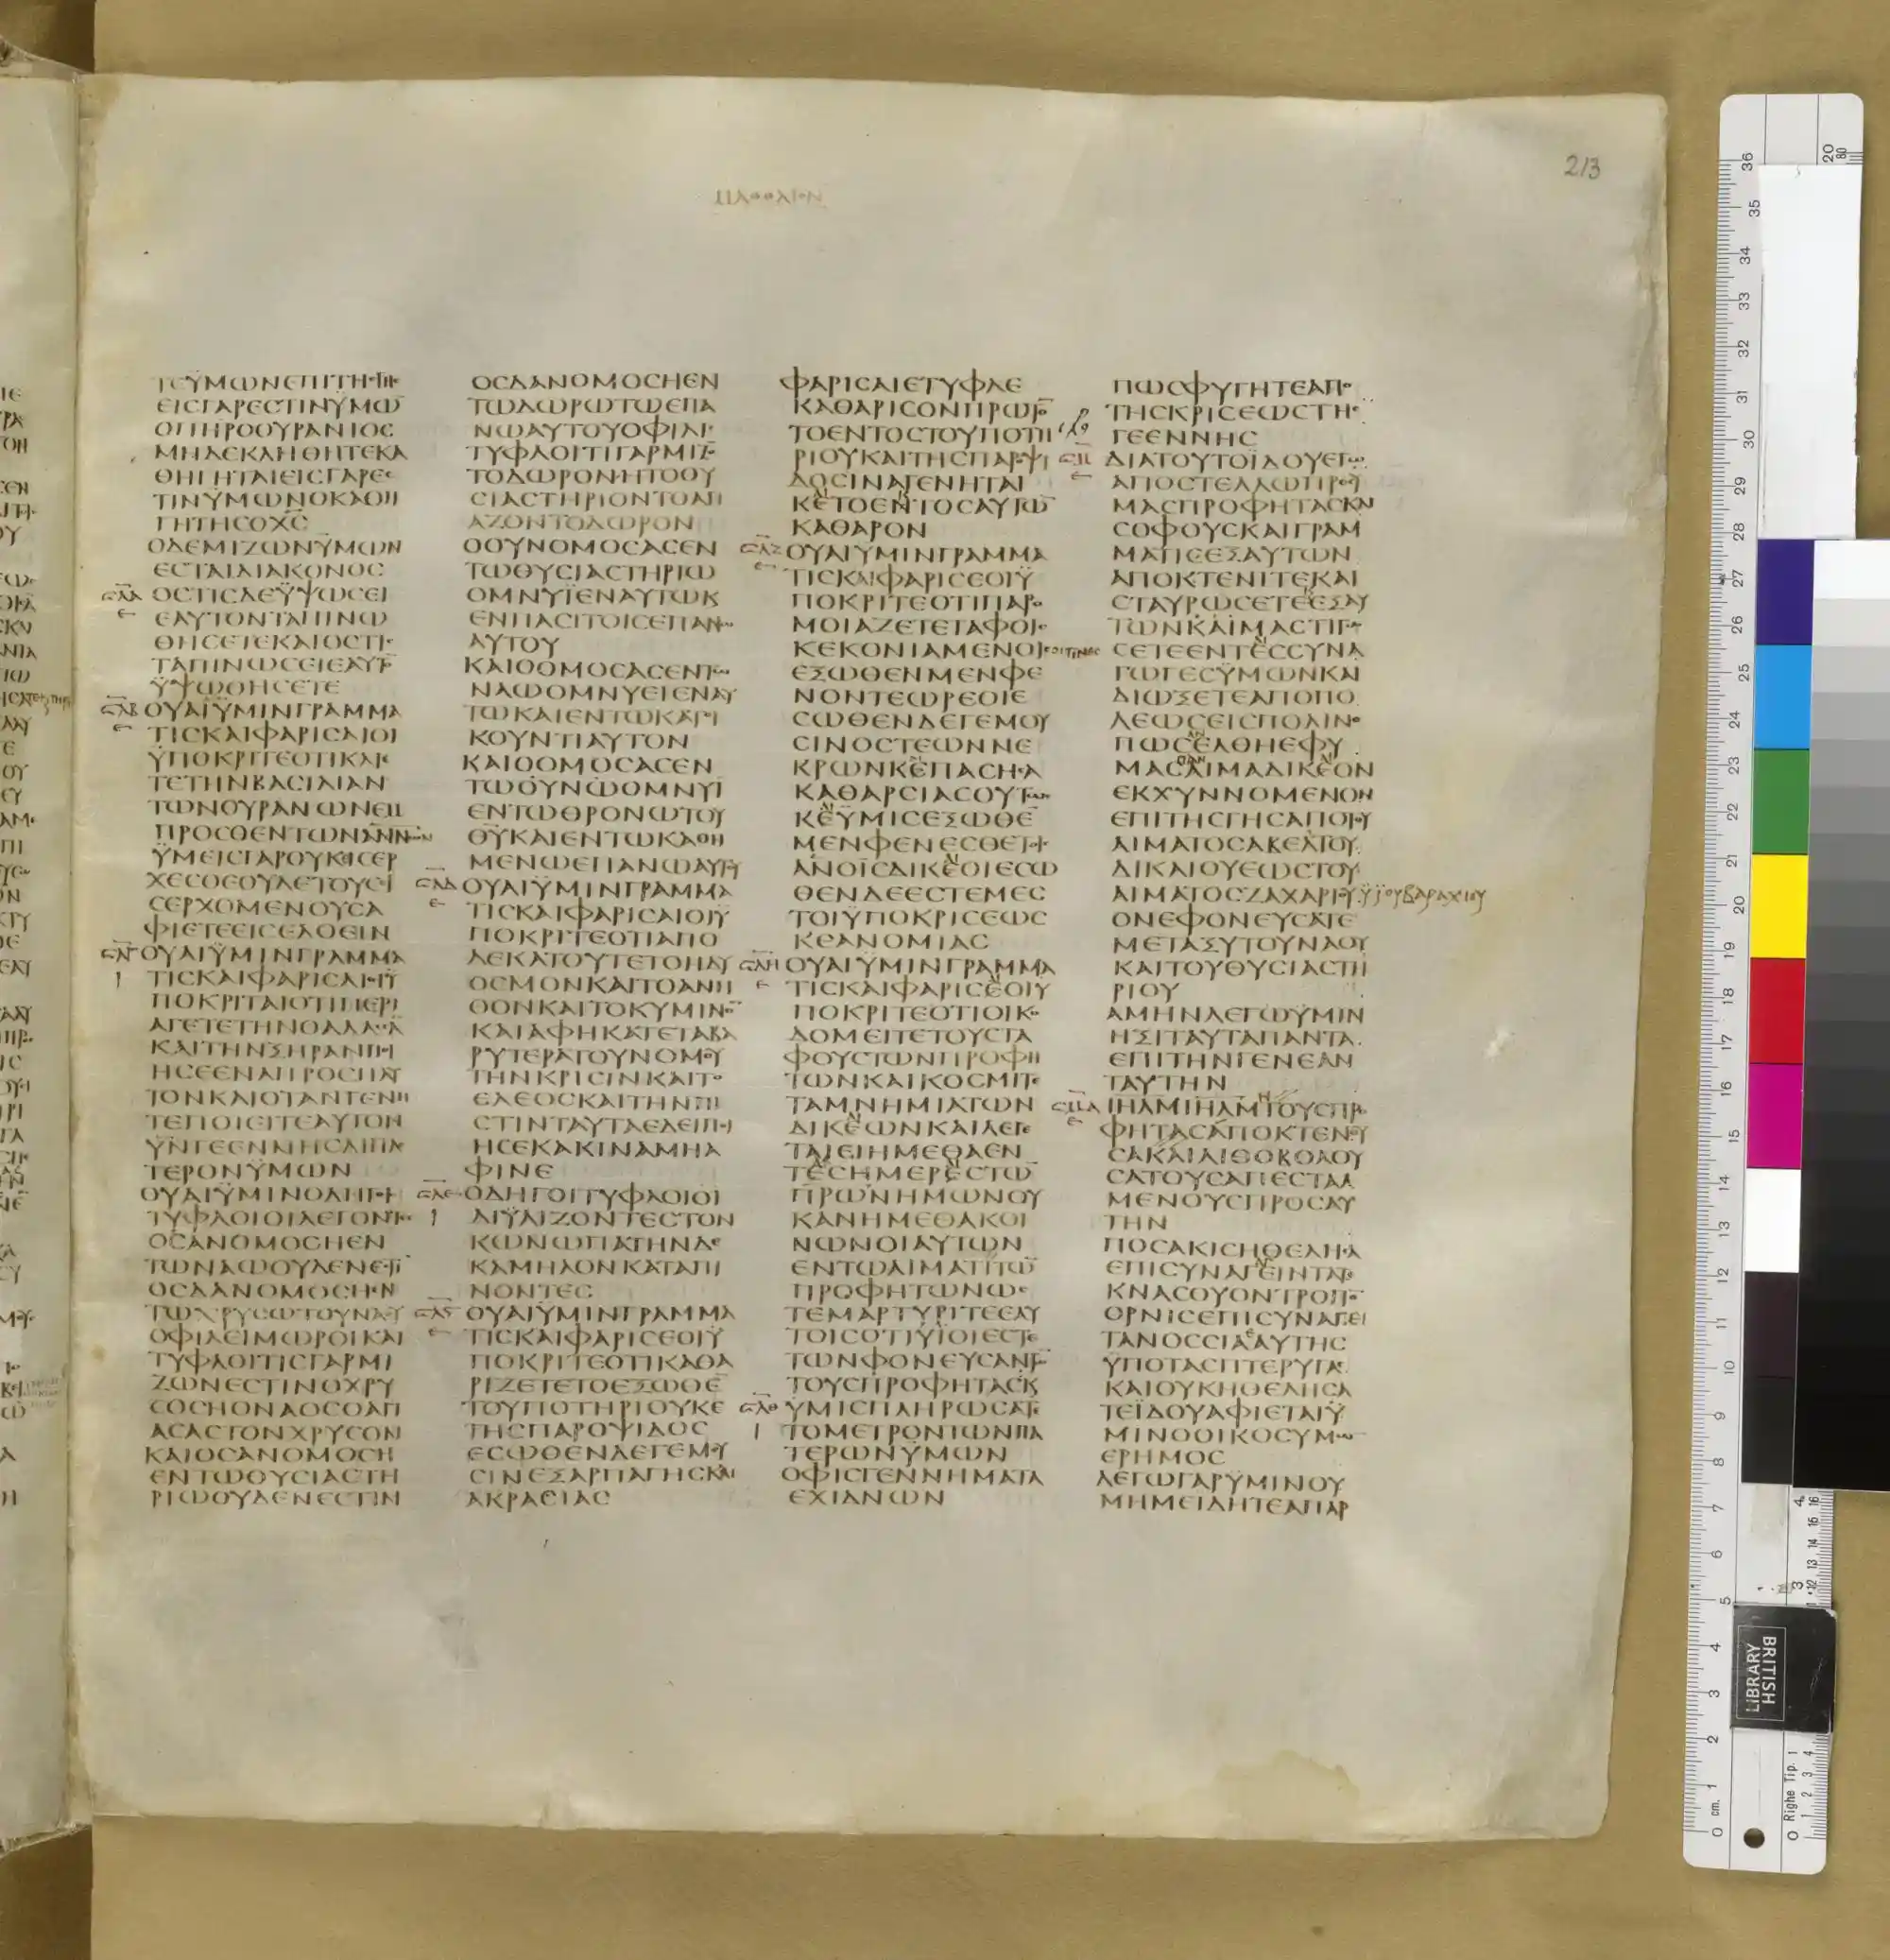 213
ΤΕΫΜΩΝΕΠΙΤΗΣΓΗΣ
ΕΙΣΓΑΡΕΣΤΙΝΥΜΩ̅
ΟΠΗΡΟΟΥΡΑΝΙΟΣ
ΜΗΔΕΚΛΗΘΗΤΕΚΑ
ΘΗΓΗΤΑΙΕΙΣΓΑΡΕΣ
ΤΙΝΥΜΩΝΟΚΑΘΗ
ΓΗΤΗΣΟΧ̅Σ̅
ΟΔΕΜΙΖΩΝΫΜΩΝ
ΕΣΤΑΙΔΙΑΚΟΝΟΣ
ΟΣΤΙΣΔΕΫΨΩΣΕΙ
ΕΑΥΤΟΝΤΑΠΙΝΩ
ΘΗΣΕΤΕΚΑΙΟΣΤΙΣ
ΤΑΠΙΝΩΣΕΙΕΑΥΤ̅
ΫΨΩΘΗΣΕΤΕ
ΟΥΑΙΫΜΙΝΓΡΑΜΜΑ
ΤΙΣΚΑΙΦΑΡΙΣΑΙΟΙ
ΫΠΟΚΡΙΤΕΟΤΙΚΛΙΕ
ΤΕΤΗΝΒΑΣΙΛΙΑΝ
ΤΩΝΟΥΡΑΝΩΝΕΜ
ΠΡΟΣΘΕΝΤΩΝΑ̅Ν̅Ν̅ΩΝ
ΫΜΕΙΣΓΑΡΟΥΚΙΣΕΡ
ΧΕΣΘΕΟΥΔΕΤΟΥΣΙ
ΣΕΡΧΟΜΕΝΟΥΣΑ
ΦΙΕΤΕΕΙΣΕΛΘΕΙΝ
ΟΥΑΙΫΜΙΝΓΡΑΜΜΑ
ΤΙΣΚΑΙΦΑΡΙΣΑΙΟΙΫ
ΠΟΚΡΙΤΑΙΟΤΙΠΕΡΙ
ΑΓΕΤΕΤΗΝΘΑΛΑΣΣΑ̅
ΚΑΙΤΗΝΞΗΡΑΝΠΟΙ
ΗΣΕΕΝΑΠΡΟΣΗΛΥ
ΤΟΝΚΑΙΟΤΑΝΓΕΝΗ
ΤΕΠΟΙΕΙΤΕΑΥΤΟΝ
ΫΝΓΕΕΝΝΗΣΔΙΠΛΟ
ΤΕΡΟΝΫΜΩΝ
ΟΥΑΙΫΜΙΝΟΔΗΓΟΙ
ΤΥΦΛΟΙΟΙΛΕΓΟΝΤΕΣ
ΟΣΑΝΟΜΟΣΗΕΝ
ΤΩΝΑΩΟΥΔΕΝΕΣΤΙ̅
ΟΣΔΑΝΟΜΟΣΗΕΝ
ΤΩΧΡΥΣΩΤΟΥΝΑΟΥ
ΟΦΙΛΕΙΜΩΡΟΙΚΑΙ
ΤΥΦΛΟΙΤΙΣΓΑΡΜΙ
ΖΩΝΕΣΤΙΝΟΧΡΥ
ΣΟΣΗΟΝΑΟΣΟΑΓΙ
ΑΣΑΣΤΟΝΧΡΥΣΟΝ
ΚΑΙΟΣΑΝΟΜΟΣΗ
ΕΝΤΩΘΥΣΙΑΣΤΗ
ΡΙΩΟΥΔΕΝΕΣΤΙΝ
ΟΣΔΑΝΟΜΟΣΗΕΝ
ΤΩΔΩΡΩΤΩΕΠΑ
ΝΩΑΥΤΟΥΟΦΙΛΙ
ΤΥΦΛΟΙΤΙΓΑΡΜΙΖ̅
ΤΟΔΩΡΟΝΗΤΟΘΥ
ΣΙΑΣΤΗΡΙΟΝΤΟΑΓΙ
ΑΖΟΝΤΟΔΩΡΟΝ
ΟΟΥΝΟΜΟΣΑΣΕΝ
ΤΩΘΥΣΙΑΣΤΗΡΙΩ
ΟΜΝΥΪΕΝΑΥΤΩΚ
ΕΝΠΑΣΙΤΟΙΣΕΠΑΝΩ
ΑΥΤΟΥ
ΚΑΙΟΟΜΟΣΑΣΕΝΤΩ
ΝΑΩΟΜΝΥΕΙΕΝΑΥ
ΤΩΚΑΙΕΝΤΩΚΑΤΟΙ
ΚΟΥΝΤΙΑΥΤΟΝ
ΚΑΙΟΟΜΟΣΑΣΕΝ
ΤΩΟΥΝΩΟΜΝΥΙ
ΕΝΤΩΘΡΟΝΩΤΟΥ
Θ̅Υ̅ΚΑΙΕΝΤΩΚΑΘΗ
ΜΕΝΩΕΠΑΝΩΑΥΤΟΥ
ΟΥΑΙΫΜΙΝΓΡΑΜΜΑ
ΤΙΣΚΑΙΦΑΡΙΣΑΙΟΙΫ
ΠΟΚΡΙΤΕΟΤΙΑΠΟ
ΔΕΚΑΤΟΥΤΕΤΟΗΔΥ
ΟΣΜΟΝΚΑΙΤΟΑΝΗ
ΘΟΝΚΑΙΤΟΚΥΜΙΝΟ̅
ΚΑΙΑΦΗΚΑΤΕΤΑΒΑ
ΡΥΤΕΡΑΤΟΥΝΟΜΟΥ
ΤΗΝΚΡΙΣΙΝΚΑΙΤΟ
ΕΛΕΟΣΚΑΙΤΗΝΠΙ
ΣΤΙΝΤΑΥΤΑΕΔΕΙΠΟΙ
ΗΣΕΚΑΚΙΝΑΜΗΑ
ΦΙΝΕ
ΟΔΗΓΟΙΤΥΦΛΟΙΟΙ
ΔΙΫΛΙΖΟΝΤΕΣΤΟΝ
ΚΩΝΩΠΑΤΗΝΔΕ
ΚΑΜΗΛΟΝΚΑΤΑΠΙ
ΝΟΝΤΕΣ
ΟΥΑΙΫΜΙΝΓΡΑΜΜΑ
ΤΙΣΚΑΙΦΑΡΙΣΕΟΙΫ
ΠΟΚΡΙΤΕΟΤΙΚΑΘΑ
ΡΙΖΕΤΕΤΟΕΞΩΘΕ̅
ΤΟΥΠΟΤΗΡΙΟΥΚΕ
ΤΗΣΠΑΡΟΨΙΔΟΣ
ΕΣΩΘΕΝΔΕΓΕΜΟΥ
ΣΙΝΕΞΑΡΠΑΓΗΣΚΑΙ
ΑΚΡΑΣΙΑΣ
ΦΑΡΙΣΑΙΕΤΥΦΛΕ
ΚΑΘΑΡΙΣΟΝΠΡΩΤΟ̅
ΤΟΕΝΤΟΣΤΟΥΠΟΤΗ
ΡΙΟΥΚΑΙΤΗΣΠΑΡΟΨΙ
ΔΟΣΙΝΑΓΕΝΗΤΑΙ
ΚΕΤΟΕΝΤΟΣΑΥΤΩ̅
ΚΑΘΑΡΟΝ
ΟΥΑΙΫΜΙΝΓΡΑΜΜΑ
ΤΙΣΚΑΙΦΑΡΙΣΕΟΙΫ
ΠΟΚΡΙΤΕΟΤΙΠΑΡΟ
ΜΟΙΑΖΕΤΕΤΑΦΟΙΣ
ΚΕΚΟΝΙΑΜΕΝΟΙΣΟΙΤΙΝΕΣ
ΕΞΩΘΕΝΜΕΝΦΕ
ΝΟΝΤΕΩΡΕΟΙΕ
ΣΩΘΕΝΔΕΓΕΜΟΥ
ΣΙΝΟΣΤΕΩΝΝΕ
ΚΡΩΝΚΕΠΑΣΗΣΑ
ΚΑΘΑΡΣΙΑΣΟΥΤΩΣ
ΚΕΫΜΙΣΕΞΩΘΕ̅
ΜΕΝΦΕΝΕΣΘΕΤΟΙΣ
Α̅Ν̅Ο̅Ι̅ΣΔΙΚΕΟΙΕΣΩ
ΘΕΝΔΕΕΣΤΕΜΕΣ
ΤΟΙΫΠΟΚΡΙΣΕΩΣ
ΚΕΑΝΟΜΙΑΣ
ΟΥΑΙΫΜΙΝΓΡΑΜΜΑ
ΤΙΣΚΑΙΦΑΡΙΣΕΟΙΥ
ΠΟΚΡΙΤΕΟΤΙΟΙΚΟ
ΔΟΜΕΙΤΕΤΟΥΣΤΑ
ΦΟΥΣΤΩΝΠΡΟΦΗ
ΤΩΝΚΑΙΚΟΣΜΙΤΕ
ΤΑΜΝΗΜΙΑΤΩΝ
ΔΙΚΕΩΝΚΑΙΛΕΓΕ
ΤΑΙΕΙΗΜΕΘΑΕΝ
ΤΕΣΗΜΕΡΕΣΤΩ̅
ΠΡΩΝΗΜΩΝΟΥ
ΚΑΝΗΜΕΘΑΚΟΙ
ΝΩΝΟΙΑΥΤΩΝ
ΕΝΤΩΑΙΜΑΤΙΤΩ̅
ΠΡΟΦΗΤΩΝΩΣ
ΤΕΜΑΡΤΥΡΙΤΕΕΑΥ
ΤΟΙΣΟΤΙΫΪΟΙΕΣΤΕ
ΤΩΝΦΟΝΕΥΣΑΝΤ̅
ΤΟΥΣΠΡΟΦΗΤΑΣΚ
ΫΜΙΣΠΛΗΡΩΣΑΤΕ
ΤΟΜΕΤΡΟΝΤΩΝΠΑ
ΤΕΡΩΝΫΜΩΝ
ΟΦΙΣΓΕΝΝΗΜΑΤΑ
ΕΧΙΔΝΩΝ
ΠΩΣΦΥΓΗΤΕΑΠΟ
ΤΗΣΚΡΙΣΕΩΣΤΗΣ
ΓΕΕΝΝΗΣ
ΔΙΑΤΟΥΤΟΪΔΟΥΕΓΩ
ΑΠΟΣΤΕΛΛΩΠΡΟΣΥ
ΜΑΣΠΡΟΦΗΤΑΣΚΑΙ
ΣΟΦΟΥΣΚΑΙΓΡΑΜ
ΜΑΤΙΣΕΞΑΥΤΩΝ
ΑΠΟΚΤΕΝΙΤΕΚΑΙ
ΣΤΑΥΡΩΣΕΤΕΕΞΑΥ
ΤΩΝΚΑΙΜΑΣΤΙΓΩ
ΣΕΤΕΕΝΤΕΣΣΥΝΑ
ΓΩΓΕΣΫΜΩΝΚΑΙ
ΔΙΩΞΕΤΕΑΠΟΠΟ
ΛΕΩΣΕΙΣΠΟΛΙΝΟ
ΠΩΣΕΛΘΗΕΦΥ
ΜΑΣΑΙΜΑΔΙΚΕΟΝ
ΕΚΧΥΝΝΟΜΕΝΟΝ
ΕΠΙΤΗΣΓΗΣΑΠΟΤΟΥ
ΑΙΜΑΤΟΣΑΒΕΛΤΟΥ
ΔΙΚΑΙΟΥΕΩΣΤΟΥ
ΑΙΜΑΤΟΣΖΑΧΑΡΙΟΥ ϋϊουβαραχιου
ΟΝΕΦΟΝΕΥΣΑΤΕ
ΜΕΤΑΞΥΤΟΥΝΑΟΥ
ΚΑΙΤΟΥΘΥΣΙΑΣΤΗ
ΡΙΟΥ
ΑΜΗΝΛΕΓΩΫΜΙΝ
ΗΞΙΤΑΥΤΑΠΑΝΤΑ
ΕΠΙΤΗΝΓΕΝΕΑΝ
ΤΑΥΤΗΝ
Ι̅Η̅Λ̅Μ̅Ι̅Η̅Λ̅Μ̅ΤΟΥΣΠΡΟ
ΦΗΤΑΣΑΠΟΚΤΕΝΟΥ
ΣΑΚΑΙΛΙΘΟΒΟΛΟΥ
ΣΑΤΟΥΣΑΠΕΣΤΑΛ
ΜΕΝΟΥΣΠΡΟΣΑΥ
ΤΗΝ
ΠΟΣΑΚΙΣΗΘΕΛΗΣΑ
ΕΠΙΣΥΝΑΓΕΙΝΤΑΤΕ
ΚΝΑΣΟΥΟΝΤΡΟΠΟ̅
ΟΡΝΙΣΕΠΙΣΥΝΑΓΕΙ
ΤΑΝΟΣΣΙΑΑΥΤΗΣ
ΫΠΟΤΑΣΠΤΕΡΥΓΑΣ
ΚΑΙΟΥΚΗΘΕΛΗΣΑ
ΤΕΪΔΟΥΑΦΙΕΤΑΙΫ
ΜΙΝΟΟΙΚΟΣΥΜΩ
ΕΡΗΜΟΣ
ΛΕΓΩΓΑΡΫΜΙΝΟΥ
ΜΗΜΕΙΔΗΤΕΑΠΑΡ
BRITISH
LIBRARY